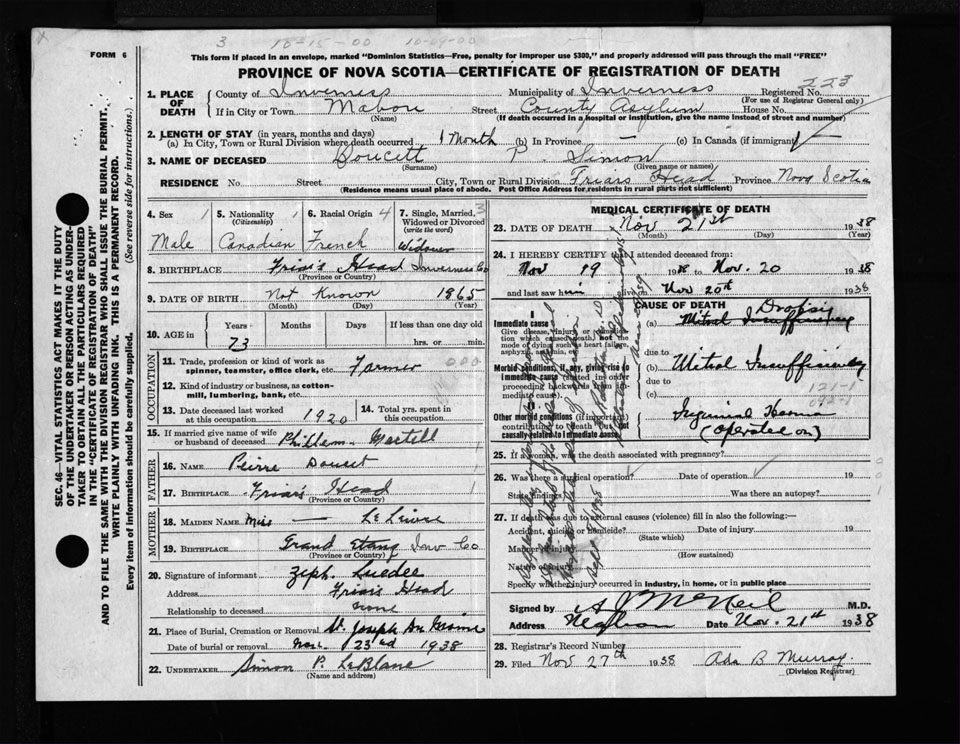 3 10-15-00 10-09-00
FORM 6
This form if placed in an envelope, marked "Dominion Statistics—Free, penalty for improper use $300," and properly addressed will pass through the mail "FREE"
PROVINCE OF NOVA SCOTIA—CERTIFICATE OF REGISTRATION OF DEATH
SEC. 46—VITAL STATISTICS ACT MAKES IT THE DUTY
OF THE UNDERTAKER OR PERSON ACTING AS UNDER-
TAKER TO OBTAIN ALL THE PARTICULARS REQUIRED
IN THE "CERTIFICATE OF REGISTRATION OF DEATH"
AND TO FILE THE SAME WITH THE DIVISION REGISTRAR WHO SHALL ISSUE THE BURIAL PERMIT.
WRITE PLAINLY WITH UNFADING INK. THIS IS A PERMANENT RECORD.
Every item of information should be carefully supplied. (See reverse side for instructions.)
1. PLACE OF DEATH County of Inverness Municipality of Inverness Registered No. 223
(For use of Registrar General only)
If in City or Town Mabou Street County Asylum House No.
(Name) (If death occurred in a hospital or institution, give the name instead of street and number)
2. LENGTH OF STAY (in years, months and days)
(a) In City, Town or Rural Division where death occurred 1 Month (b) In Province — (c) In Canada (if immigrant) —
3. NAME OF DECEASED Doucett P. Simon
(Surname) (Given name or names)
RESIDENCE No. Street City, Town or Rural Division Friars Head Province Nova Scotia
(Residence means usual place of abode. Post Office Address for residents in rural parts not sufficient)
4. Sex 1 5. Nationality 1 (Citizenship) 6. Racial Origin 4 7. Single, Married, 3 Widowed or Divorced (write the word)
Male Canadian French Widower
8. BIRTHPLACE Friar's Head Inverness Co
(Province or Country)
9. DATE OF BIRTH Not Known 1865
(Month) (Day) (Year)
10. AGE in Years Months Days If less than one day old
73 hrs. or min.
OCCUPATION
11. Trade, profession or kind of work as
spinner, teamster, office clerk, etc. Farmer
12. Kind of industry or business, as cotton-
mill, lumbering, bank, etc.
13. Date deceased last worked
at this occupation 1920
14. Total yrs. spent in
this occupation
15. If married give name of wife
or husband of deceased
FATHER
16. NAME Pierre Doucet
17. BIRTHPLACE Friar's Head
(Province or Country)
MOTHER
18. MAIDEN NAME Miss —
19. BIRTHPLACE Grand Etang Inv Co
(Province or Country)
20. Signature of informant Zeph.
Address Friars Head
Relationship to deceased none
21. Place of Burial, Cremation or Removal St. Joseph Du Moine
Date of burial or removal Nov. 23rd 1938
22. UNDERTAKER Simon P. LeBlanc
(Name and address)
MEDICAL CERTIFICATE OF DEATH
23. DATE OF DEATH Nov 21st 1938
(Month) (Day) (Year)
24. I HEREBY CERTIFY that I attended deceased from:
Nov 19 1938 to Nov. 20 1938
and last saw him alive on Nov 20th 1938
CAUSE OF DEATH
I
Immediate cause
Give disease, injury or complication
which caused death, not the
mode of dying such as heart failure,
asphyxia, anaemia, etc.
Morbid conditions, if any, giving rise to
immediate cause (stated in order
proceeding backwards from
immediate cause).
II
Other morbid conditions (if important)
contributing to death but not
causally related to immediate cause
(a) Mitral Insufficiency Dropsy
due to
(b) Mitral Insufficiency
due to
(c)
121-1
Inguinal Hernia
(operated on)
25. If a woman, was the death associated with pregnancy?
26. Was there a surgical operation? Date of operation 19
State findings Was there an autopsy?
27. If death was due to external causes (violence) fill in also the following:—
Accident, suicide or homicide? Date of injury 19
(State which)
Manner of injury
(How sustained)
Nature of injury
Specify whether injury occurred in industry, in home, or in public place
Signed by A J McNeil M.D.
Address Date Nov. 21st 1938
28. Registrar's Record Number
29. Filed Nov 27th 1938 Ada B Murray
(Division Registrar)